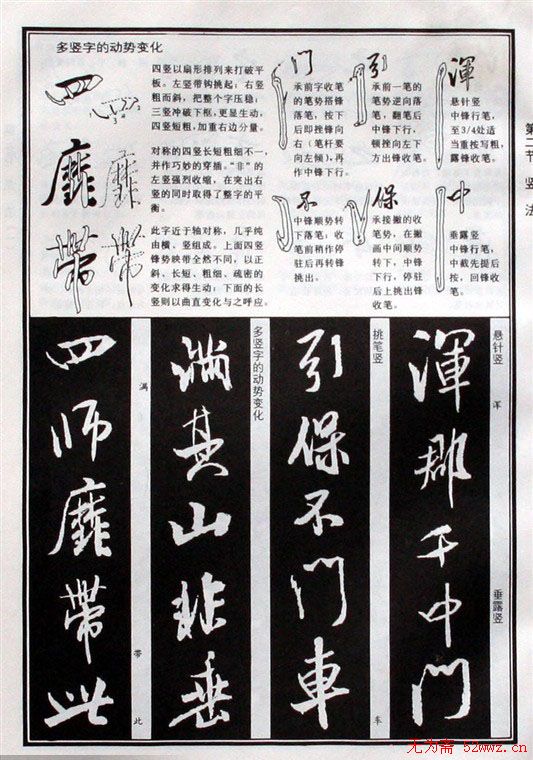 多竖字的动势变化
四竖以扇形排列来打破平
板。左竖带钩挑起；右竖
粗而斜，把整个字压稳；
三竖冲破下框，更显生动，
四竖短粗，加重右边分量。
对称的四竖长短粗细不一，
并作巧妙的穿插。“非”的
左竖强烈收缩，在突出右
竖的同时取得了整字的平
衡。
此字近于轴对称，几乎纯
由横、竖组成。上面四竖
锋势映带全然不同，以正
斜、长短、粗细、疏密的
变化求得生动；下面的长
竖则以曲直变化与之呼应。
四
靡
带
门
承前字收笔
的笔势搭锋
落笔，按下
后即挫锋向
右（笔杆要
向左倾），再
作中锋下行。
不
中锋顺势转
下落笔；收
笔前稍作停
驻后再转锋
挑出。
引
承前一笔的
笔势逆向落
笔，翻笔后
中锋下行，
顿挫向左下
方出锋收笔。
保
承接撇的收
笔势，在撇
画中间顺势
转下，中锋
下行，停驻
后上挑出锋
收笔。
浑
悬针竖
中锋行笔，
至3/4处适
当重按写粗，
露锋收笔。
中
垂露竖
中锋行笔，
中截先提后
按，回锋收
笔。
第二节 竖法
悬针竖
浑
垂露竖
渾郡千中門
挑笔竖
车
引保不門車
多竖字的动势变化
满其山非垂
满
带
此
四师靡帶此
尤为斋 52wwz.cn